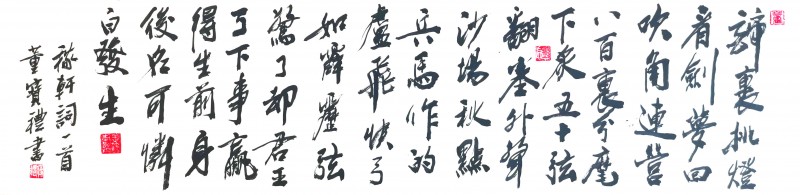 醉裏挑燈
看劍夢回
吹角連營
八百裏分麾
下炙五十弦
翻塞外聲
沙場秋點
兵馬作的
盧飛快弓
如霹靂弦
驚了却君王
天下事贏
得生前身
後名可憐
白發生
稼軒詞一首
董寶禮書